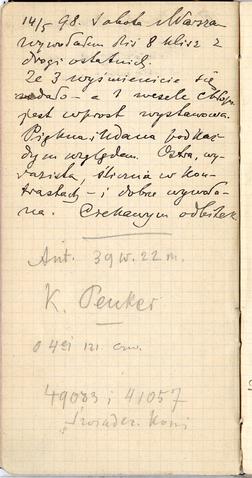 14/5 98. Sobota Warsza
wywołałem dziś 8 klisz z
drogi ostatniej.
Ze 3 wyśmienicie się
udało - a 1 wesele chłop.
jest wprost wystawowa.
Piękna i udana pod każ-
dym względem. Ostra, wy-
razista, śliczna w kon-
trastach - i dobrze wywoła-
na. Ciekawym odbitek
Ant. 39 w. 22 m.
K. Penker
49083 i 41057